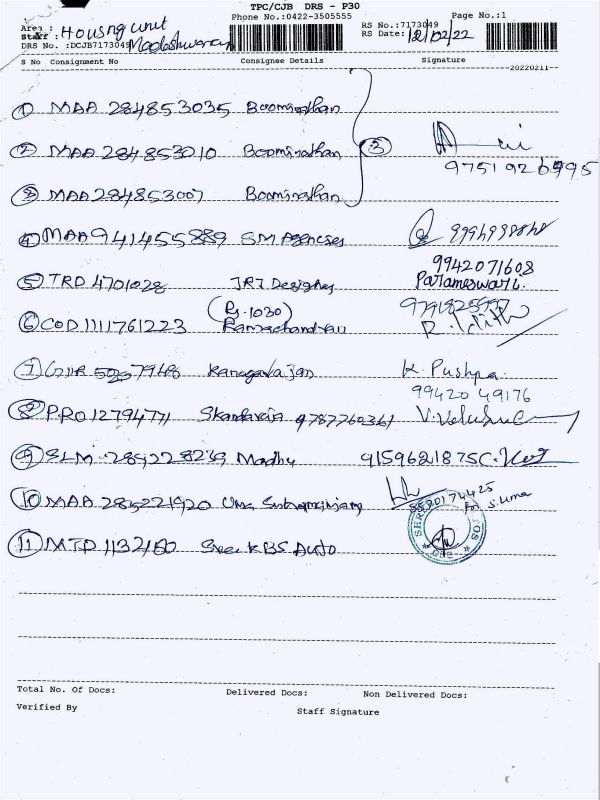 TPC/CJB DRS - P30
Phone No.:0422-3505555
Page No.:1
Area : Housing unit
Staff : Madeshwaran
RS No.:7173049
RS Date: 12/02/22
DRS No. :DCJB7173049
S No Consignment No Consignee Details Signature
20220211
1 MAA 284853035 Boominathan
2 MAA 284853010 Boominathan 3
9751926995
3 MAA 284853007 Boominathan
4 MAA 941455889 SM Agencies
9942071608
5 TRD 4701028 Parameswari.
(Rs.1030)
6 COD 1111761223 Ramachandran
7 Kanagarajan K. Pushpa
99420 49176
8 PRO 12794771 9787760361
9 SLM Madhu 9159621875
10 MAA Uma
for S. Uma
11 MTD 1132160 Sree KBS Auto
Total No. Of Docs: Delivered Docs: Non Delivered Docs:
Verified By Staff Signature